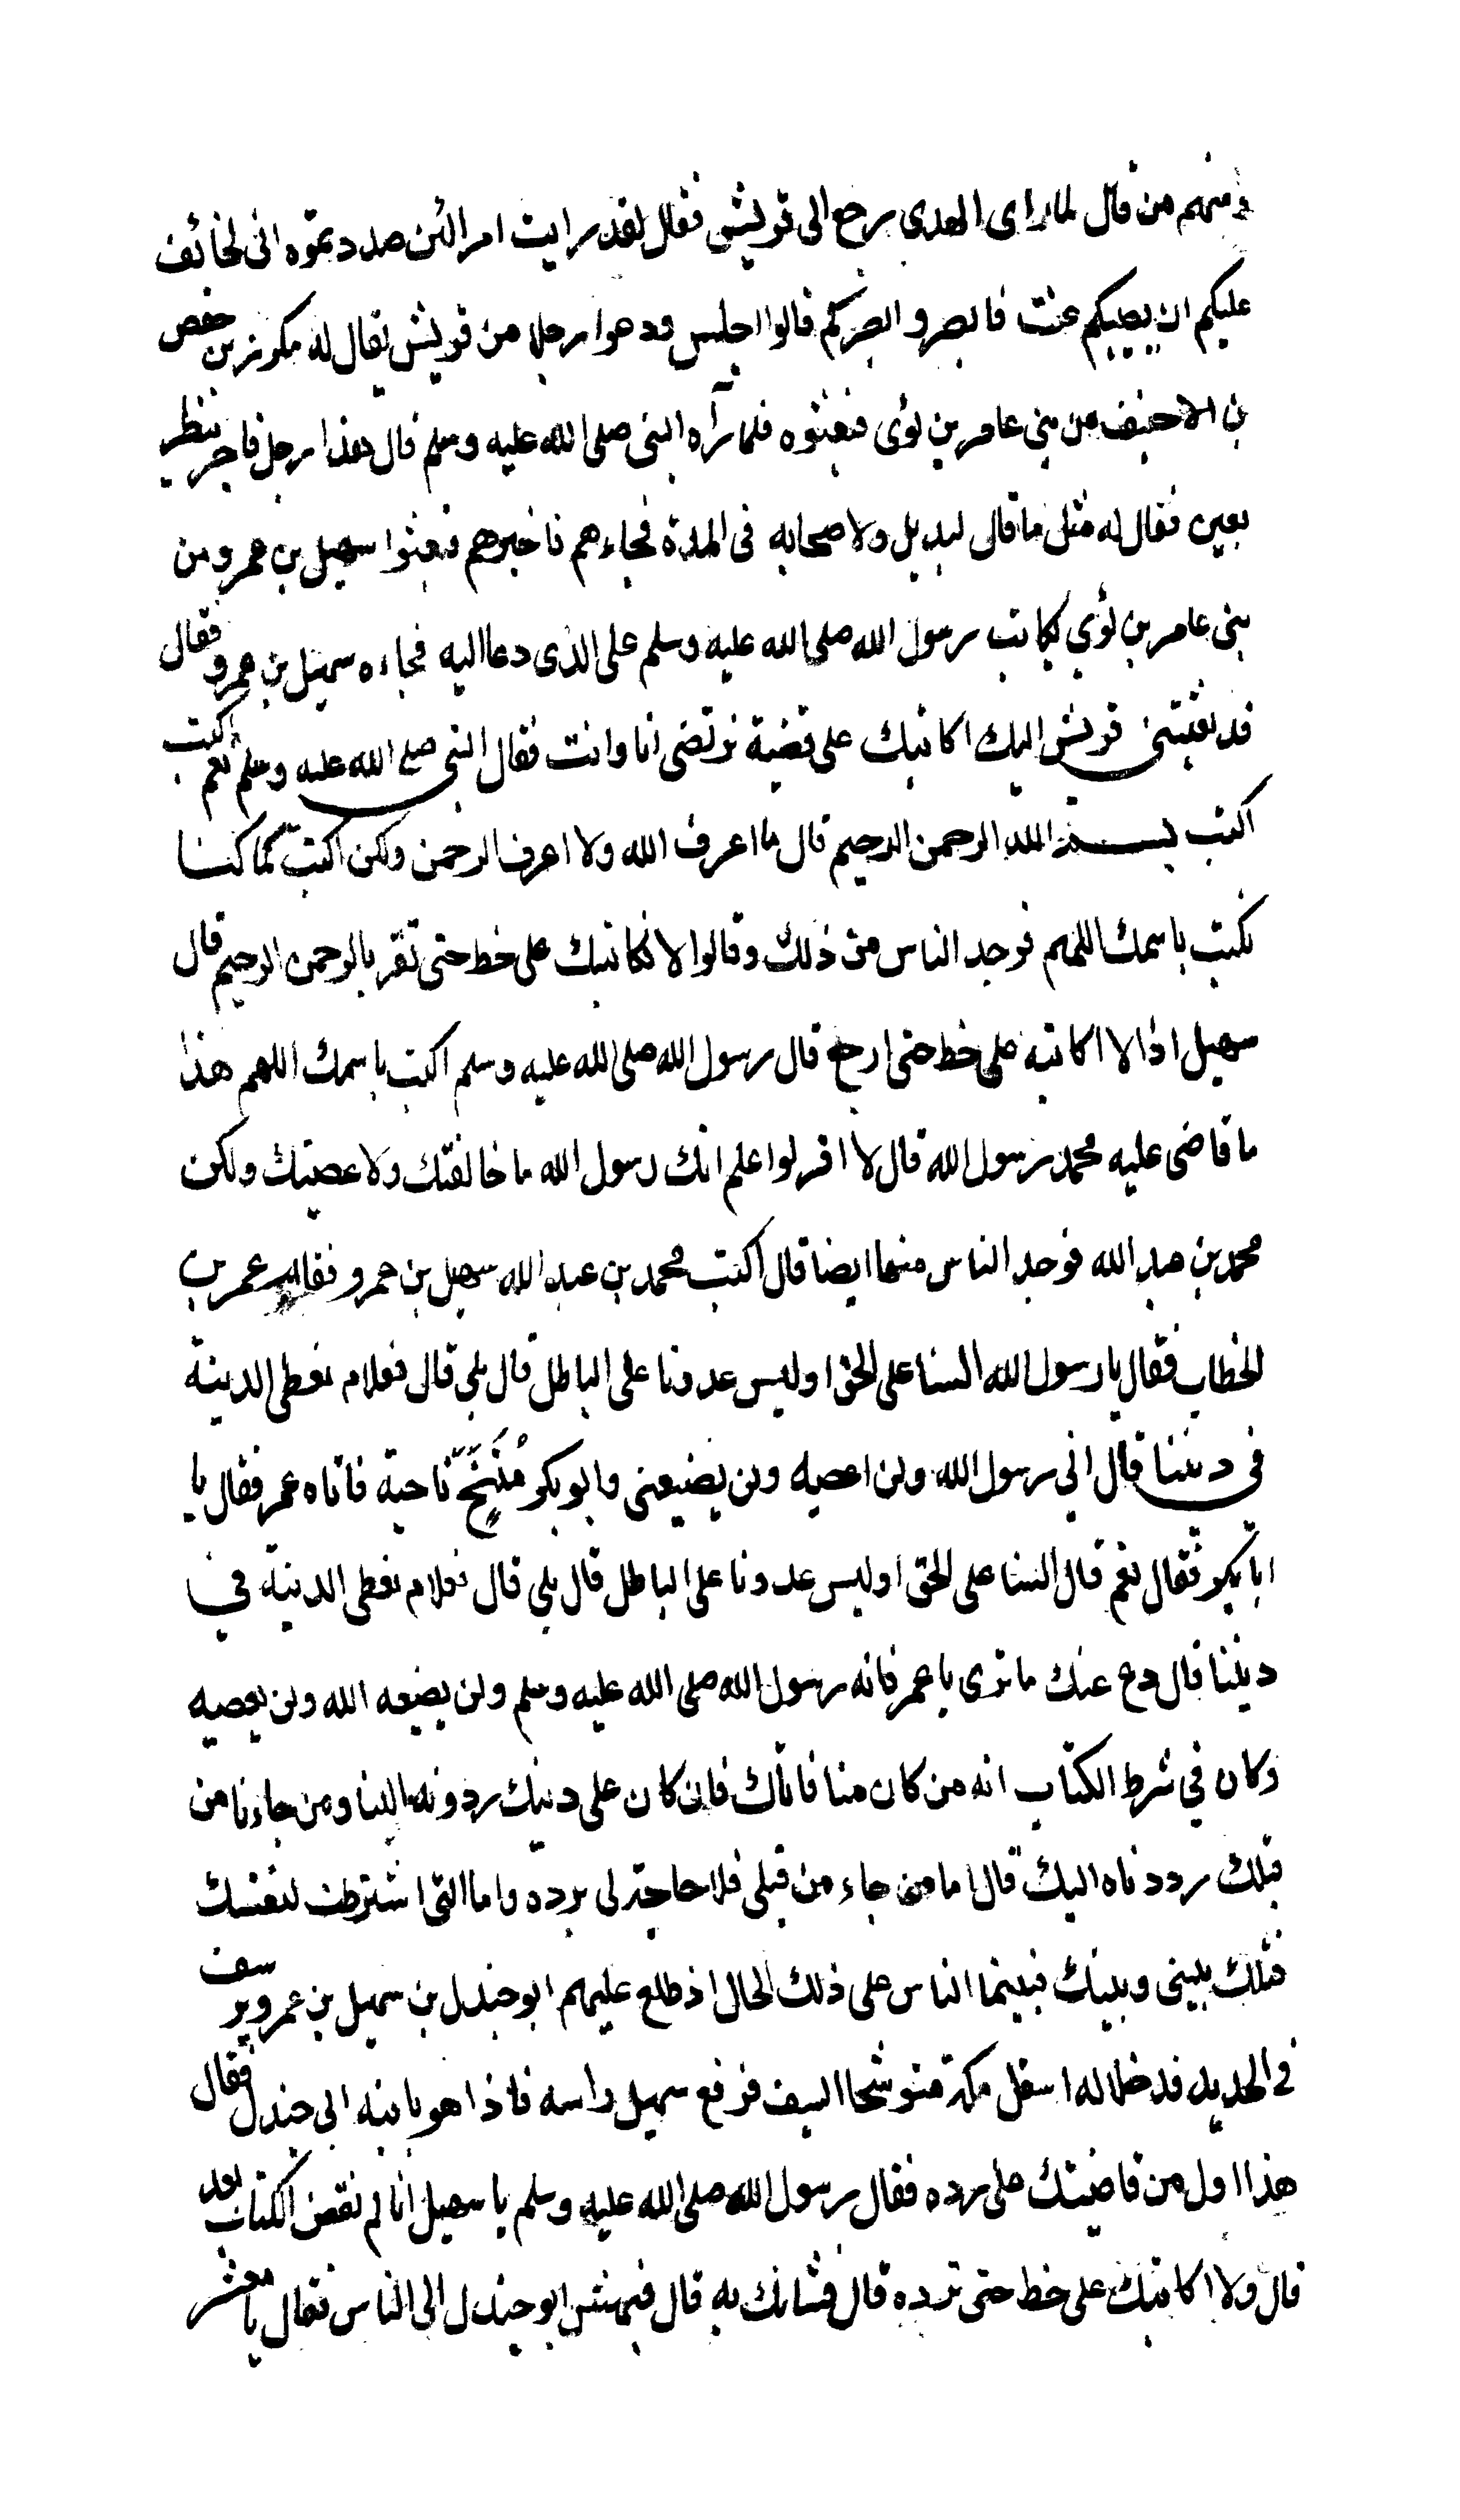 ومنهم من قال لما راى الهدى رجع الى قريش فقال لقد رايت امرا لئن صددتموه انى لخائف
عليكم ان يصيبكم عنت فابصروا بصركم قالوا اجلس ودعوا رجلا من قريش يقال له مكرز بن حفص
بن الاحنف من بنى عامر بن لؤى فبعثوه فلما رآه النبى صلى الله عليه وسلم قال هذا رجل فاجر ينظر
بعين فقال له مثل ما قال لبديل ولاصحابه فى المدة فجاءهم فاخبرهم فبعثوا سهيل بن عمرو من
بنى عامر بن لؤي يكاتب رسول الله صلى الله عليه وسلم على الذى دعا اليه فجاءه سهيل بن عمرو فقال
قد بعثتنى قريش اليك اكاتبك على قضية نرتضى انا وانت فقال النبى صلى الله عليه وسلم نعم اكتب
اكتب بسم الله الرحمن الرحيم قال ما اعرف الله ولا اعرف الرحمن ولكن اكتب كما كنا
نكتب باسمك اللهم فوجد الناس من ذلك وقالوا لا نكاتبك على خط حتى تقر بالرحمن الرحيم قال
سهيل اذا لا اكاتبه على خط حتى ارجع قال رسول الله صلى الله عليه وسلم اكتب باسمك اللهم هذا
ما قاضى عليه محمد رسول الله قال لا اقر لو اعلم انك رسول الله ما خالفتك ولا عصيتك ولكن
محمد بن عبد الله فوجد الناس منها ايضا قال اكتب محمد بن عبد الله سهيل بن عمرو فقام عمر بن
الخطاب فقال يا رسول الله السنا على الحق اوليس عدونا على الباطل قال بلى قال فعلام نعطى الدينة
في ديننا قال اني رسول الله ولن اعصيه ولن يضيعنى وابو بكر مُتَنَحٍّ ناحية فاتاه عمر فقال يا
ابا بكر فقال نعم قال السنا على الحق اوليس عدونا على الباطل قال بلي قال فعلام نعطى الدنية في
ديننا قال دع عنك ما ترى يا عمر فانه رسول الله صلى الله عليه وسلم ولن يضيعه الله ولن يعصيه
وكان في شرط الكتاب انه من كان منا فاتاك فان كان على دينك رددته الينا ومن جاءنا من
قبلك رددناه اليك قال اما من جاء من قبلى فلا حاجة لى برده واما التى اشترطت لنفسك
فتلك بينى وبينك فبينما الناس على ذلك الحال اذ طلع عليهم ابو جندل بن سهيل بن عمرو يرسف
فى الحديد قد خلا له اسفل مكة متوشحا السيف فرفع سهيل راسه فاذا هو بابنه ابى جندل فقال
هذا اول من قاضيتك على رده فقال رسول الله صلى الله عليه وسلم يا سهيل انا لم نقض الكتاب بعد
قال ولا اكاتبك على خط حتى ترده قال فشانك به قال فبهش ابو جندل الى الناس فقال يا معشر